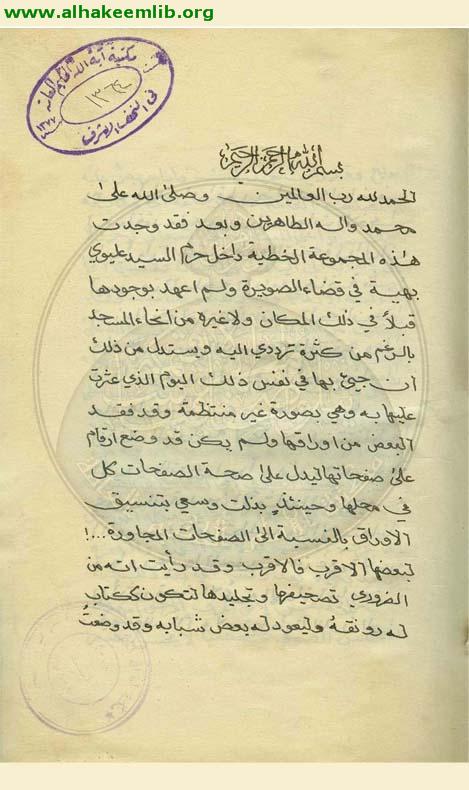 www.alhakeemlib.org
مكتبة آية الله الحكيم العامة
١٣٦٤
في النجف الاشرف
١٣٧٧
بسم الله الرحمن الرحيم
الحمد لله رب العالمين وصلى الله على
محمد واله الطاهرين وبعد فقد وجدت
هذه المجموعة الخطية داخل حرم السيد عليوي
بهية في قضاء الصويرة ولم اعهد بوجودها
قبلاً في ذلك المكان ولا غيره من انحاء المسجد
بالرغم من كثرة ترددي اليه ويستدل من ذلك
أن جيئ بها في نفس ذلك اليوم الذي عثرت
عليها به وهي بصورة غير منتظمة وقد فقد
البعض من اوراقها ولم يكن قد وضع ارقام
على صفحاتها ليدل على صحة الصفحات كل
في محلها وحينئذٍ بذلت وسعي بتنسيق
الاوراق بالنسبة الى الصفحات المجاورة ...!
لبعضها الاقرب فالاقرب وقد رأيت انه من
الضروري تصحيفها وتجليدها لتكون ككتاب
له رونقهُ وليعود له بعض شبابه وقد وضعتُ